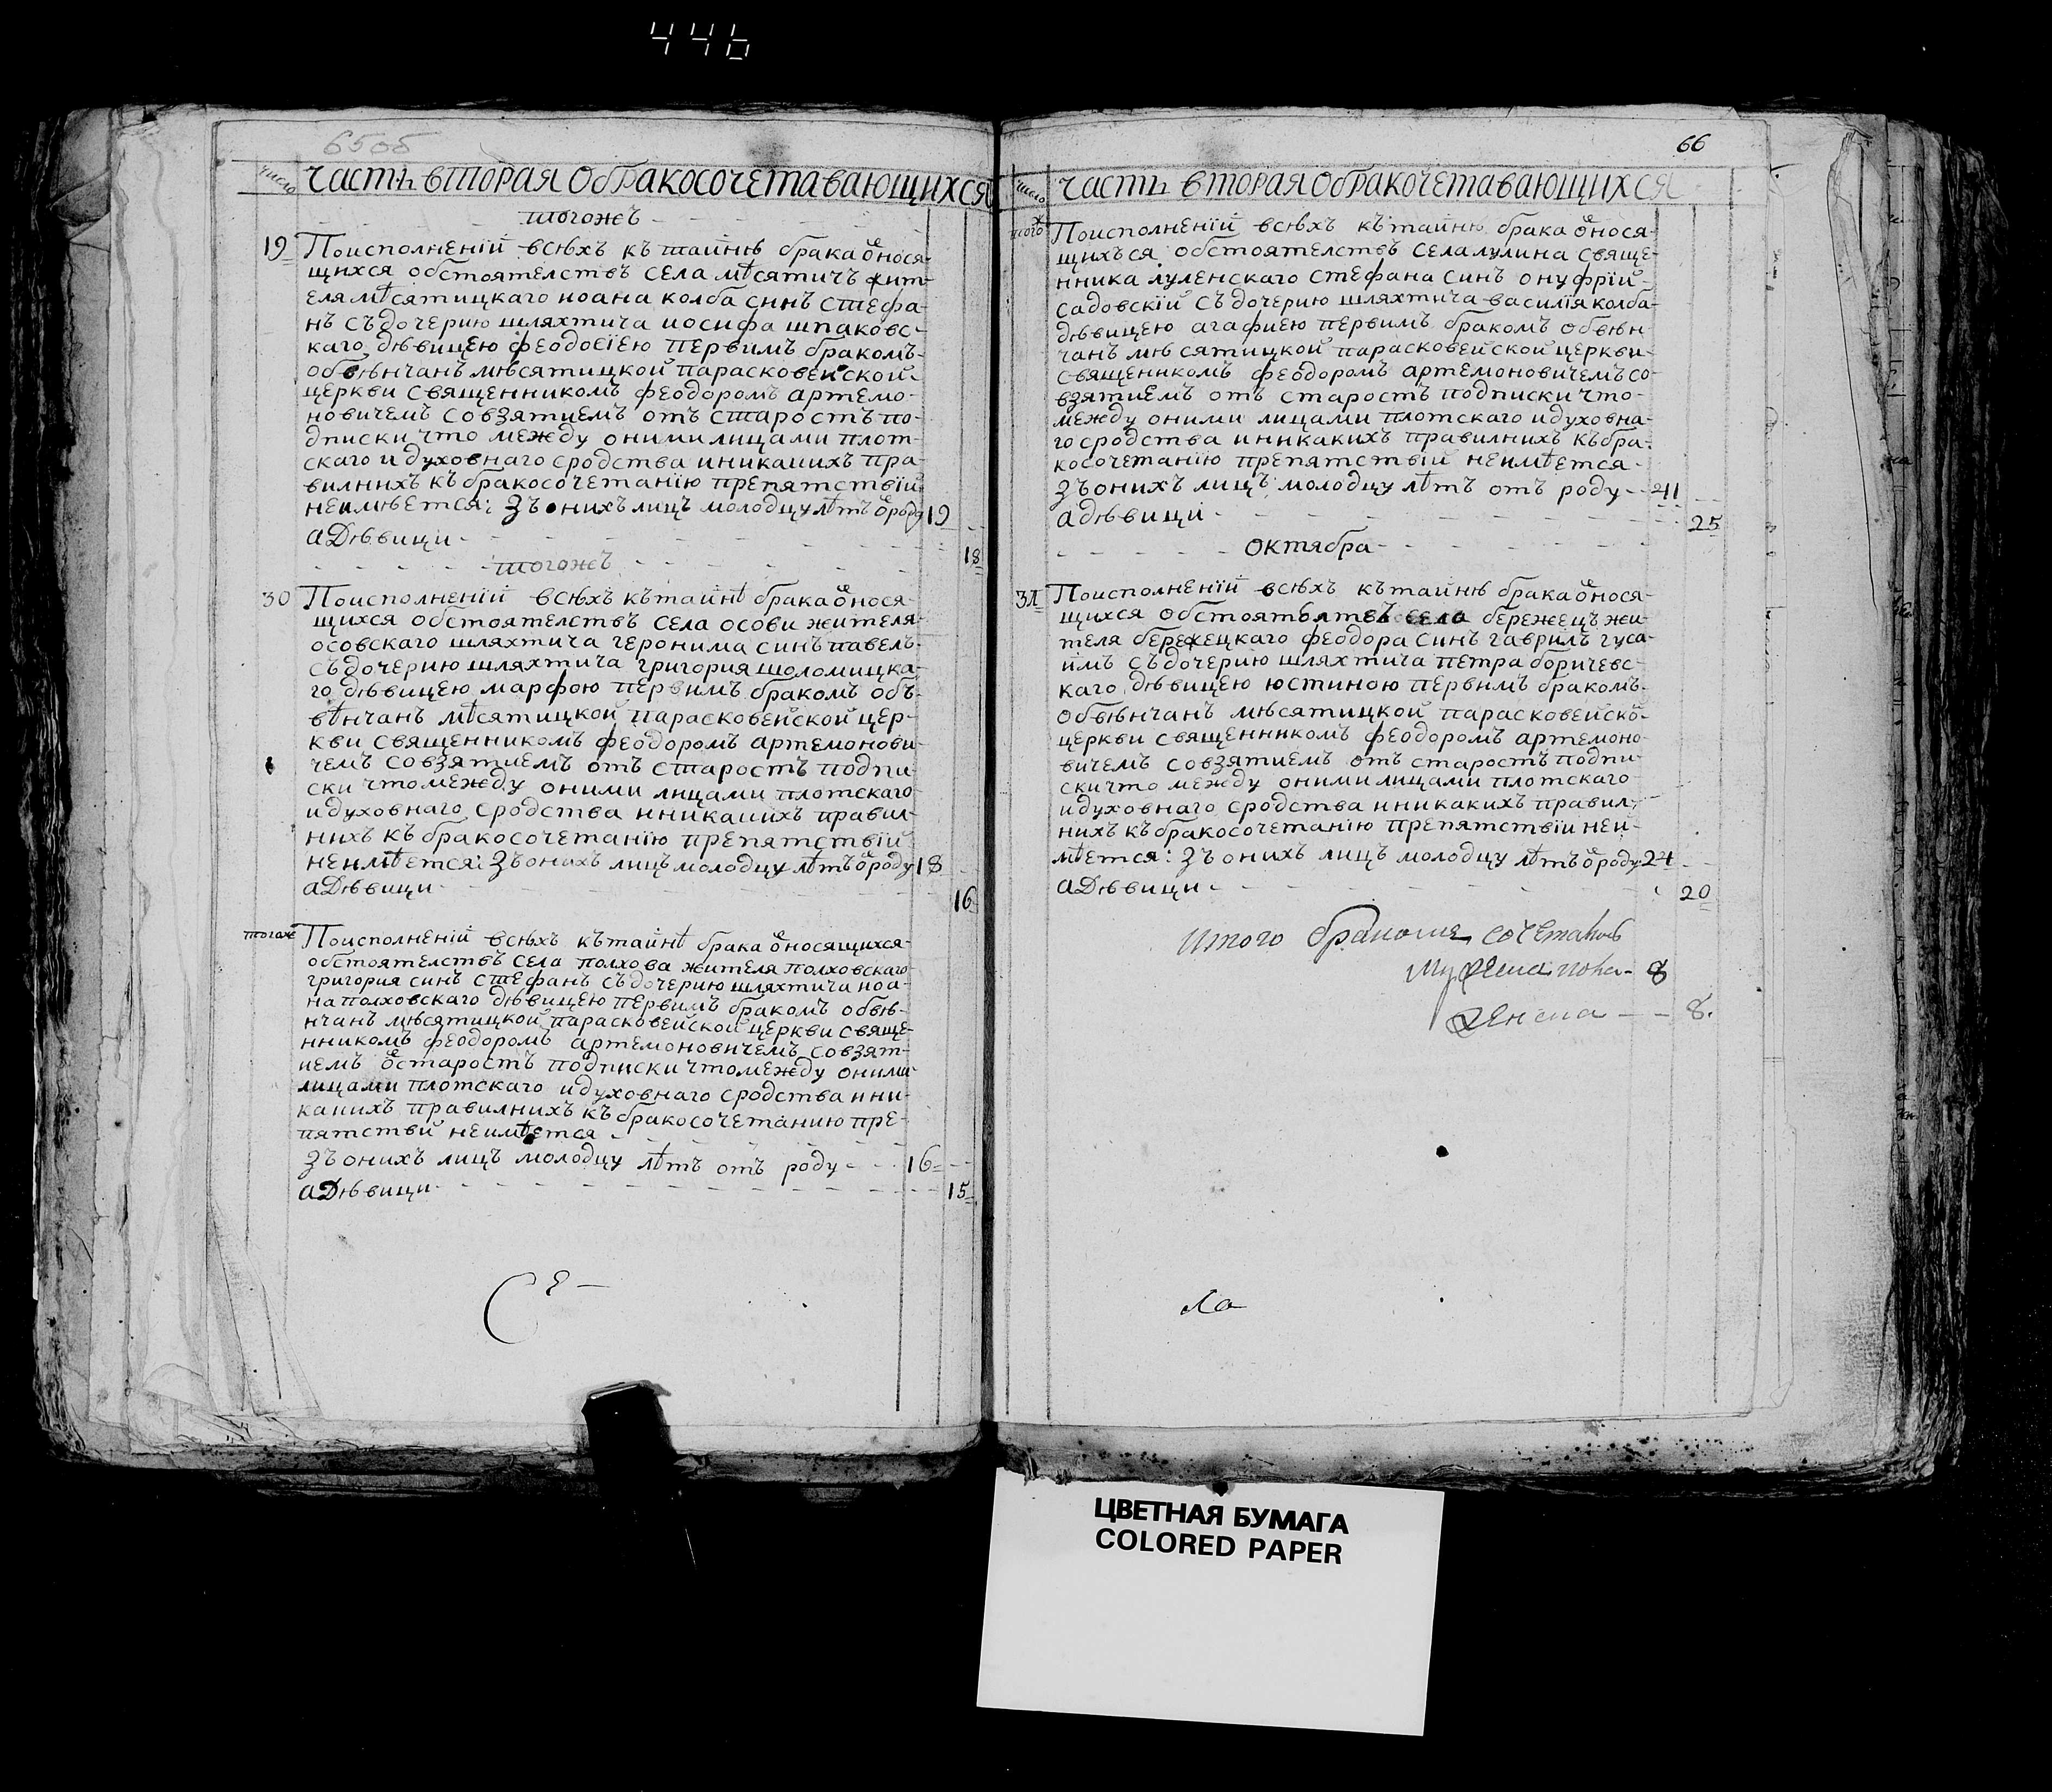 446
65об
число
часть вторая о бракосочетавающихся
тогожъ
19 По исполненій всѣхъ къ тайнѣ брака ѿнося-
щихся обстоятелствъ села мѣсятичъ жит-
еля мѣсятицкаго иоана колба синъ стефа-
нъ съ дочерию шляхтича иосифа шпаковс-
каго дѣвицею феодосіею первимъ бракомъ-
обвѣнчанъ мѣсятицкой парасковейской-
церкви священникомъ феодоромъ артемо-
новичемъ совзятиемъ отъ старостъ по-
дписки что между оними лицами плот-
скаго и духовнаго сродства иникакихъ пра-
вилнихъ къ бракосочетанїю препятствїй
неимѣется: Зъ онихъ лицъ молодцу лѣтъ ѿ роду 19
а Дѣвици - 18
тогожъ
30 По исполненій всѣхъ къ тайнѣ брака ѿнося-
щихся обстоятелствъ села осови жителя-
осовскаго шляхтича геронима синъ павелъ-
съ дочерию шляхтича григория шоломицка-
го дѣвицею марфою первимъ бракомъ объ-
вѣнчанъ мѣсятицкой парасковейской цер-
кви священникомъ феодоромъ артемонови-
чемъ совзятиемъ отъ старостъ подпи-
ски что между оними лицами плотскаго
и духовнаго сродства иникакихъ правил-
нихъ къ бракосочетанїю препятствїй
неимѣется: Зъ онихъ лицъ молодцу лѣтъ ѿ роду 18
а Дѣвици - 16
тогож По исполненій всѣхъ къ тайнѣ брака ѿносящихся
обстоятелствъ села полхова жителя полховскаго
григория синъ стефанъ съ дочерию шляхтича иоа-
на полховскаго дѣвицею первимъ бракомъ обвѣ-
нчанъ мѣсятицкой парасковейской церкви свяще-
нникомъ феодоромъ артемоновичемъ совзят-
иемъ ѿ старостъ подписки что между оними
лицами плотскаго и духовнаго сродства ини-
какихъ правилнихъ къ бракосочетанию пре-
пятствій неимѣется -
Зъ онихъ лицъ молодцу лѣтъ отъ роду - 16
а Дѣвици - 15
66
число
часть вторая о бракочетавающихся
того ж По исполненїй всѣхъ къ тайнѣ брака ѿнося-
щихъся обстоятелствъ села лулина свяще-
нника луленскаго стефана синъ онуфрїй-
садовскїй съ дочерию шляхтича василїя колба-
дѣвицею агафиею первимъ бракомъ обвѣн-
чанъ мѣсятицкой парасковейской церкви-
священикомъ феодоромъ артемоновичемъ со-
взятиемъ отъ старостъ подписки что-
между оними лицами плотскаго и духовна-
го сродства иникакихъ правилнихъ къ бра-
косочетанїю препятствїй неимѣется-
Зъ онихъ лицъ молодцу лѣтъ отъ роду - 41
а дѣвици - 25
октября
31 По исполненїй всѣхъ къ тайнѣ брака ѿнося-
щихся обстоятелтвъ села бережецъ жи-
теля бережецкаго феодора синъ гаврилъ гуса-
имъ съ дочерию шляхтича петра боричевс-
каго дѣвицею юстиною первимъ бракомъ-
обвѣнчанъ мѣсятицкой парасковейской-
церкви священникомъ феодоромъ артемоно-
вичемъ совзятиемъ отъ старостъ подпи-
ски что между оними лицами плотскаго
и духовнаго сродства иникакихъ правил-
нихъ къ бракосочетанїю препятствїи неи-
мѣется: Зъ онихъ лицъ молодцу лѣтъ ѿ роду 24
а Дѣвици - 20
Итого бракомъ сочетанось
мужеска пола - 8
женска - - 8.
ЦВЕТНАЯ БУМАГА
COLORED PAPER